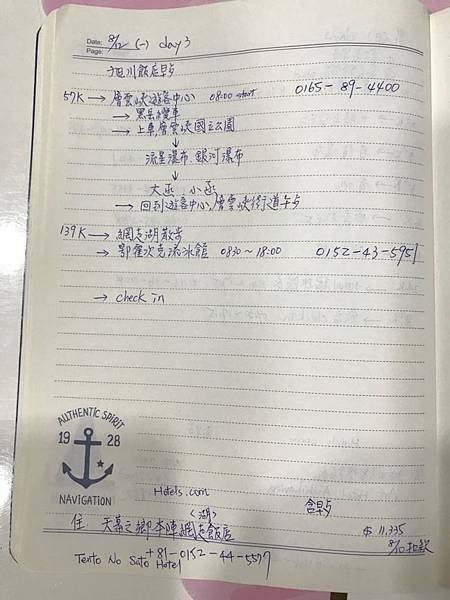 Date: 8/12 (一) day 3
Page:
旭川飯店早歺
57K → 層雲峽遊客中心 08:00 start 0165-89-4400
→ 黑岳纜車
→ 上車,層雲峽國立公園
↓
流星瀑布、銀河瀑布
↓
大函、小函
→ 回到遊客中心/層雲峽街道午歺
139K → 網走湖散步
→ 鄂霍次克流冰館 0830~18:00 0152-43-5951
→ check in
AUTHENTIC SPIRIT
1928
NAVIGATION
Hotels.com
(湖) 含早歺
住: 天幕之鄉本陣網走飯店 $ 11,335
8/10扣款
Tento No Sato Hotel +81-0152-44-5577